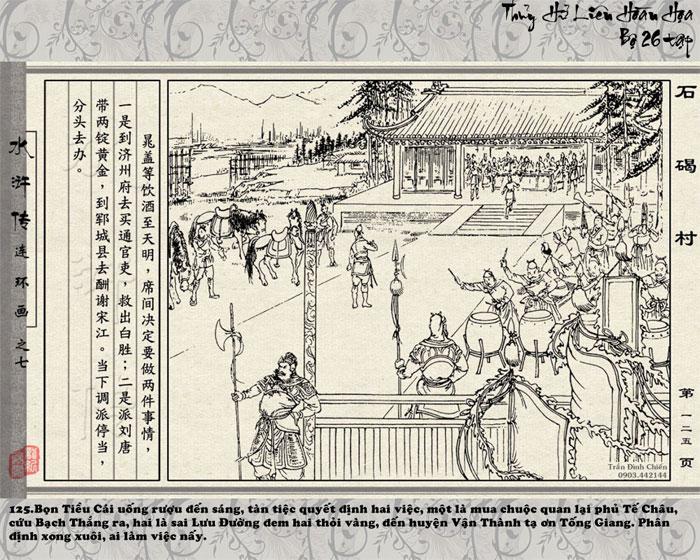 Thủy Hử Liên Hoàn Họa
Bộ 26 tập
石碣村
第一二五页
晁盖等饮酒至天明，席间决定要做两件事情，
一是到济州府去买通官吏，救出白胜；二是派刘唐
带两锭黄金，到郓城县去酬谢宋江。当下调派停当，
分头去办。
水浒传连环画之七
Trần Đình Chiến
0903.442144
125.Bọn Tiểu Cái uống rượu đến sáng, tàn tiệc quyết định hai việc, một là mua chuộc quan lại phủ Tế Châu,
cứu Bạch Thắng ra, hai là sai Lưu Đường đem hai thỏi vàng, đến huyện Vận Thành tạ ơn Tống Giang. Phân
định xong xuôi, ai làm việc nấy.